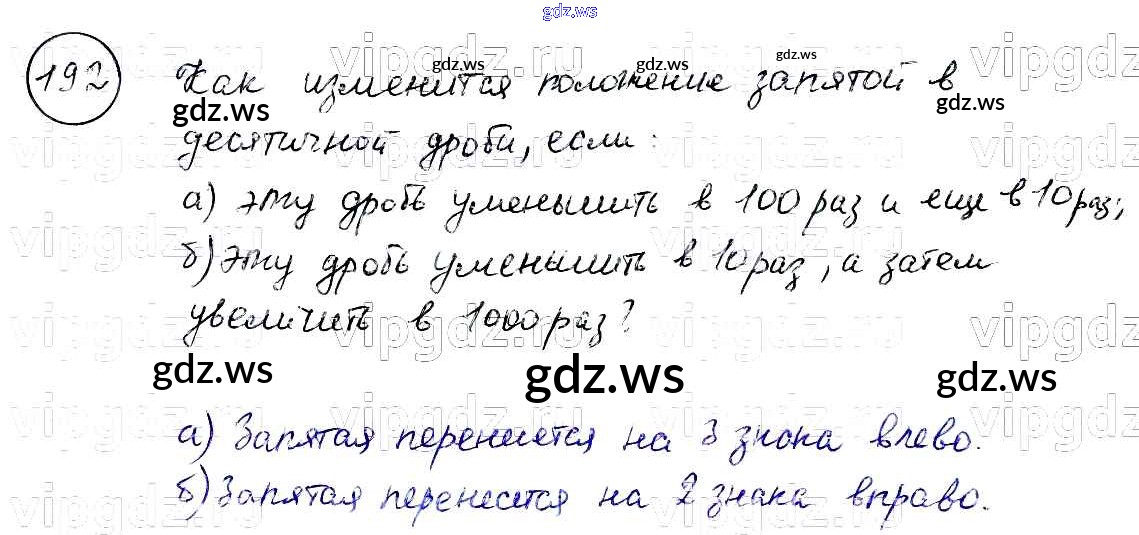 gdz.ws
192 Как изменится положение запятой в
десятичной дроби, если:
а) эту дробь уменьшить в 100 раз и еще в 10 раз;
б) эту дробь уменьшить в 10 раз, а затем
увеличить в 1000 раз?
gdz.ws gdz.ws gdz.ws
а) Запятая перенесется на 3 знака влево.
б) Запятая перенесется на 2 знака вправо.